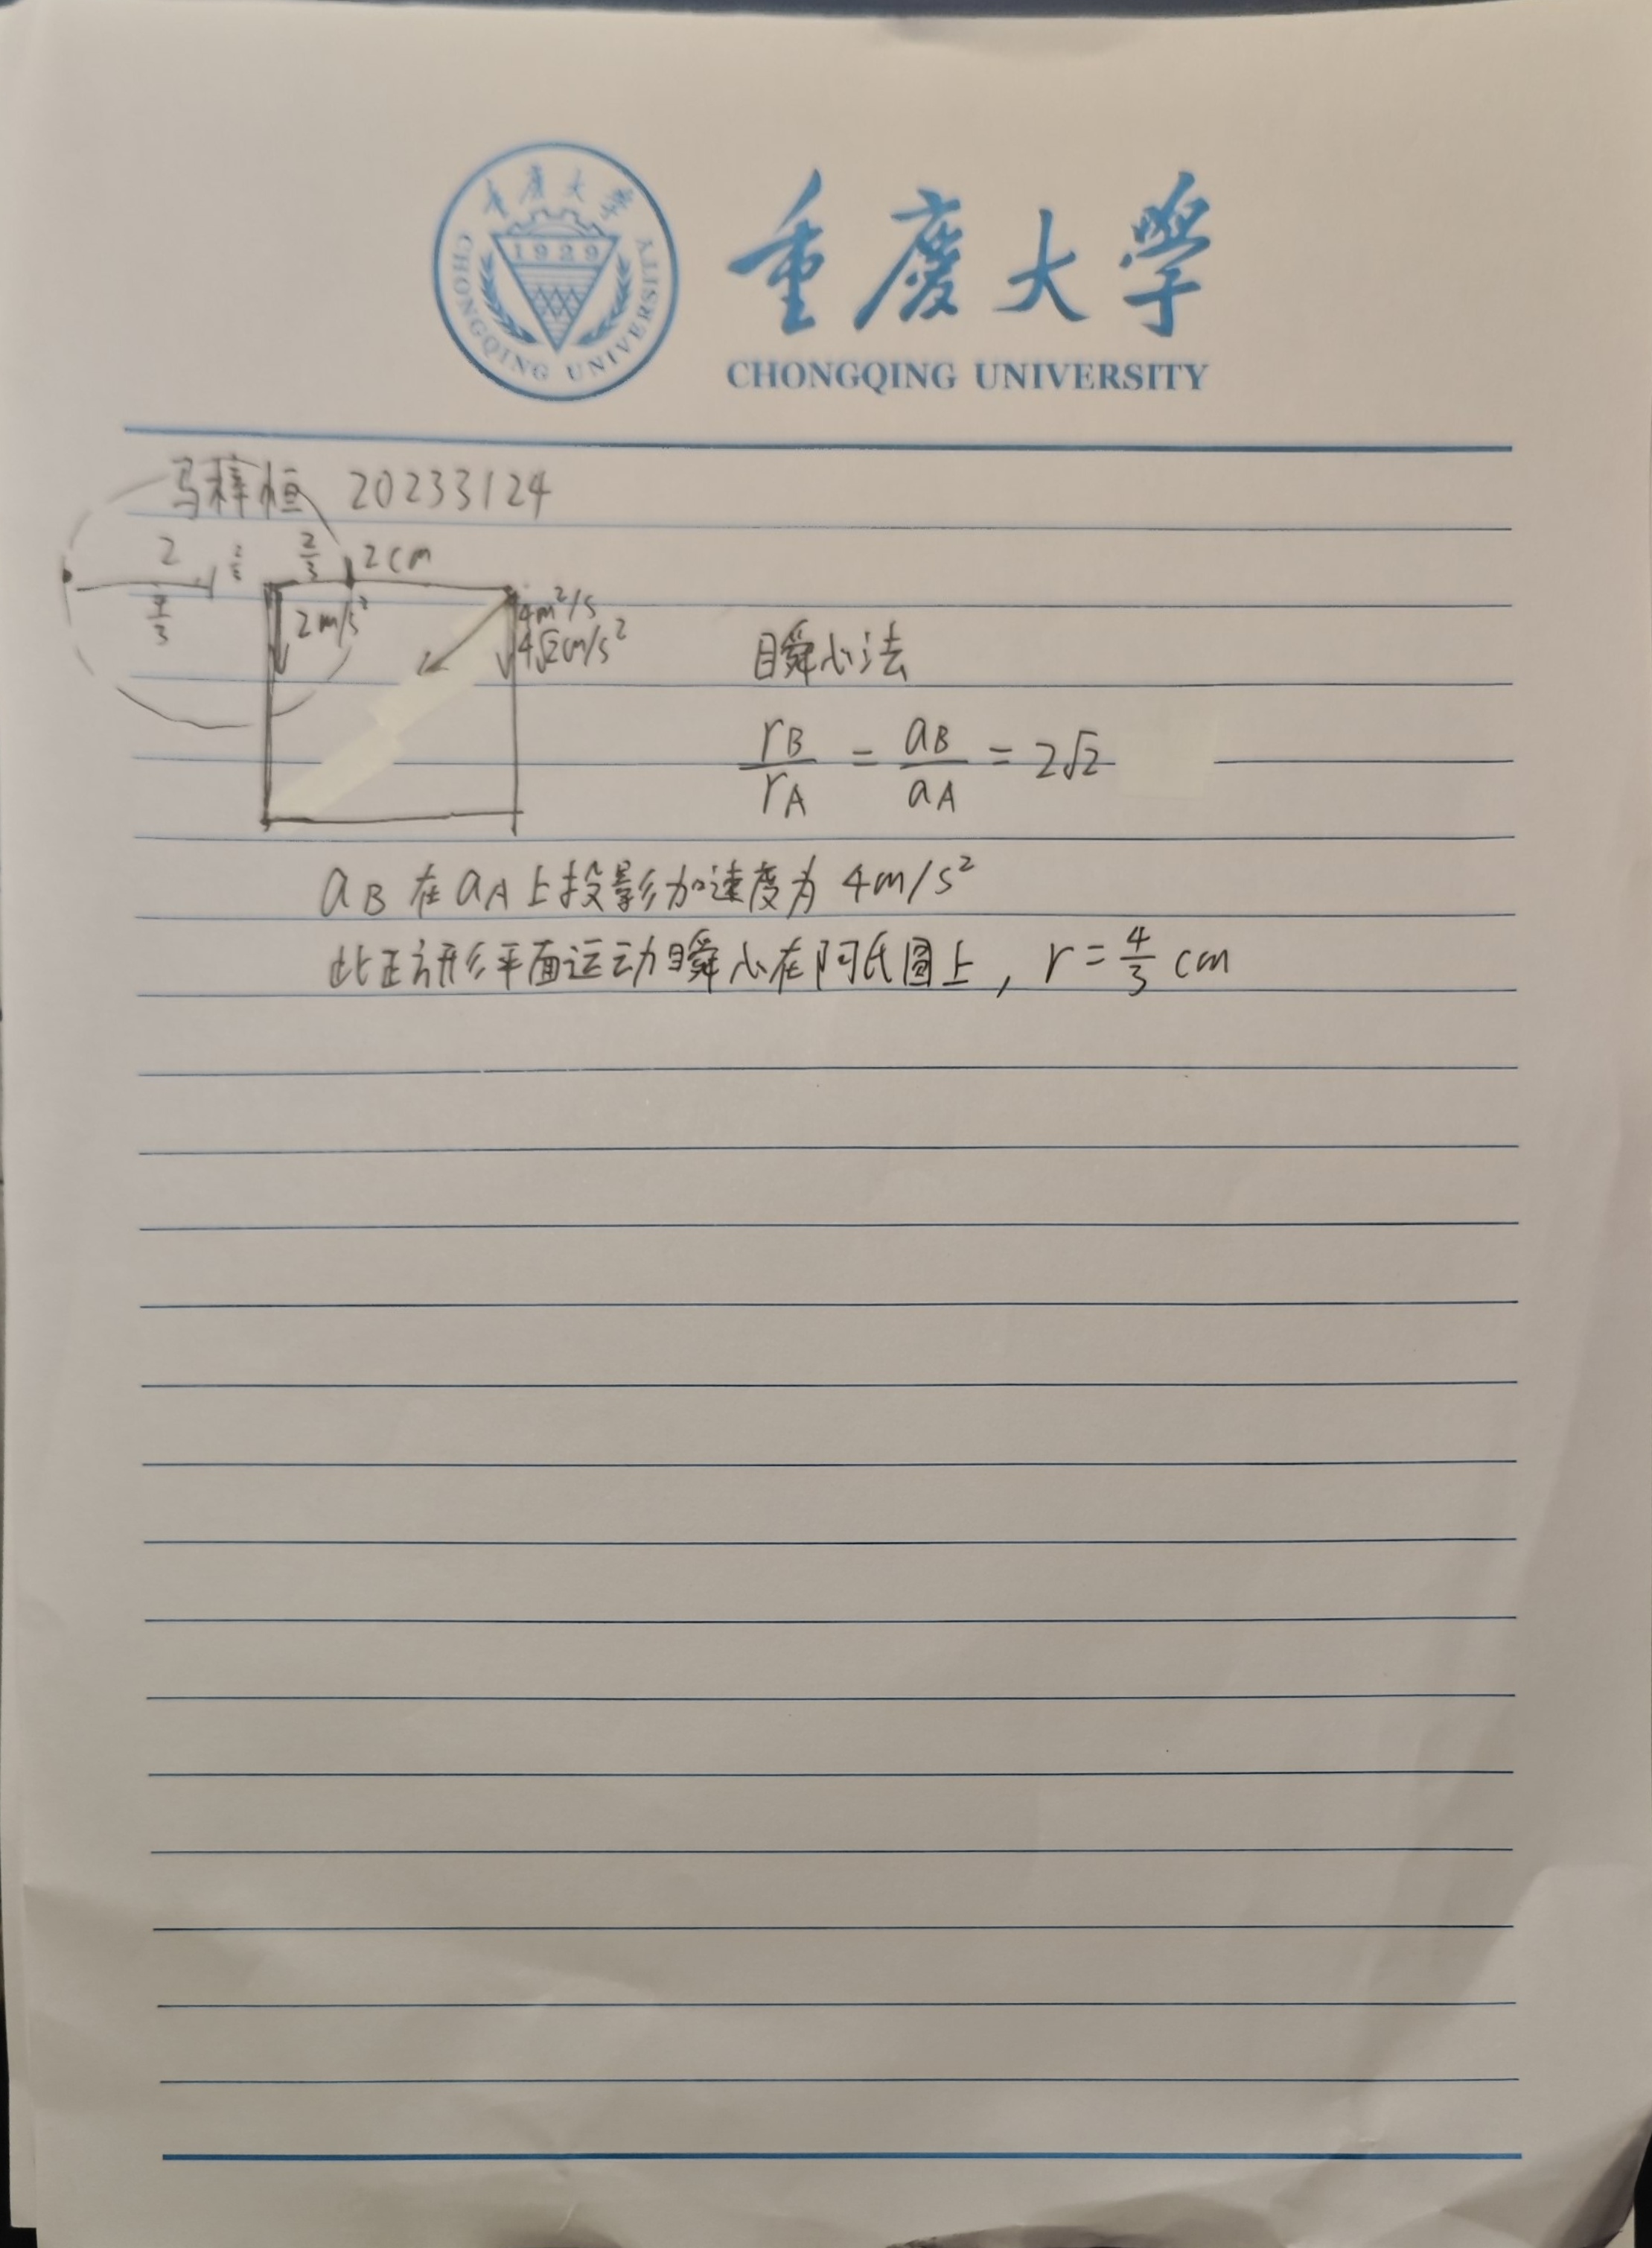 重庆大学
1929
CHONGQING UNIVERSITY
重慶大學
CHONGQING UNIVERSITY
马梓恒 20233124
2 2/3 2cm
4/3 2m/s² 4m²/s
4√2cm/s²
瞬心法
rB/rA = aB/aA = 2√2
aB在aA上投影加速度为 4m/s²
此正方形平面运动瞬心在阿氏圆上, r=4/3 cm